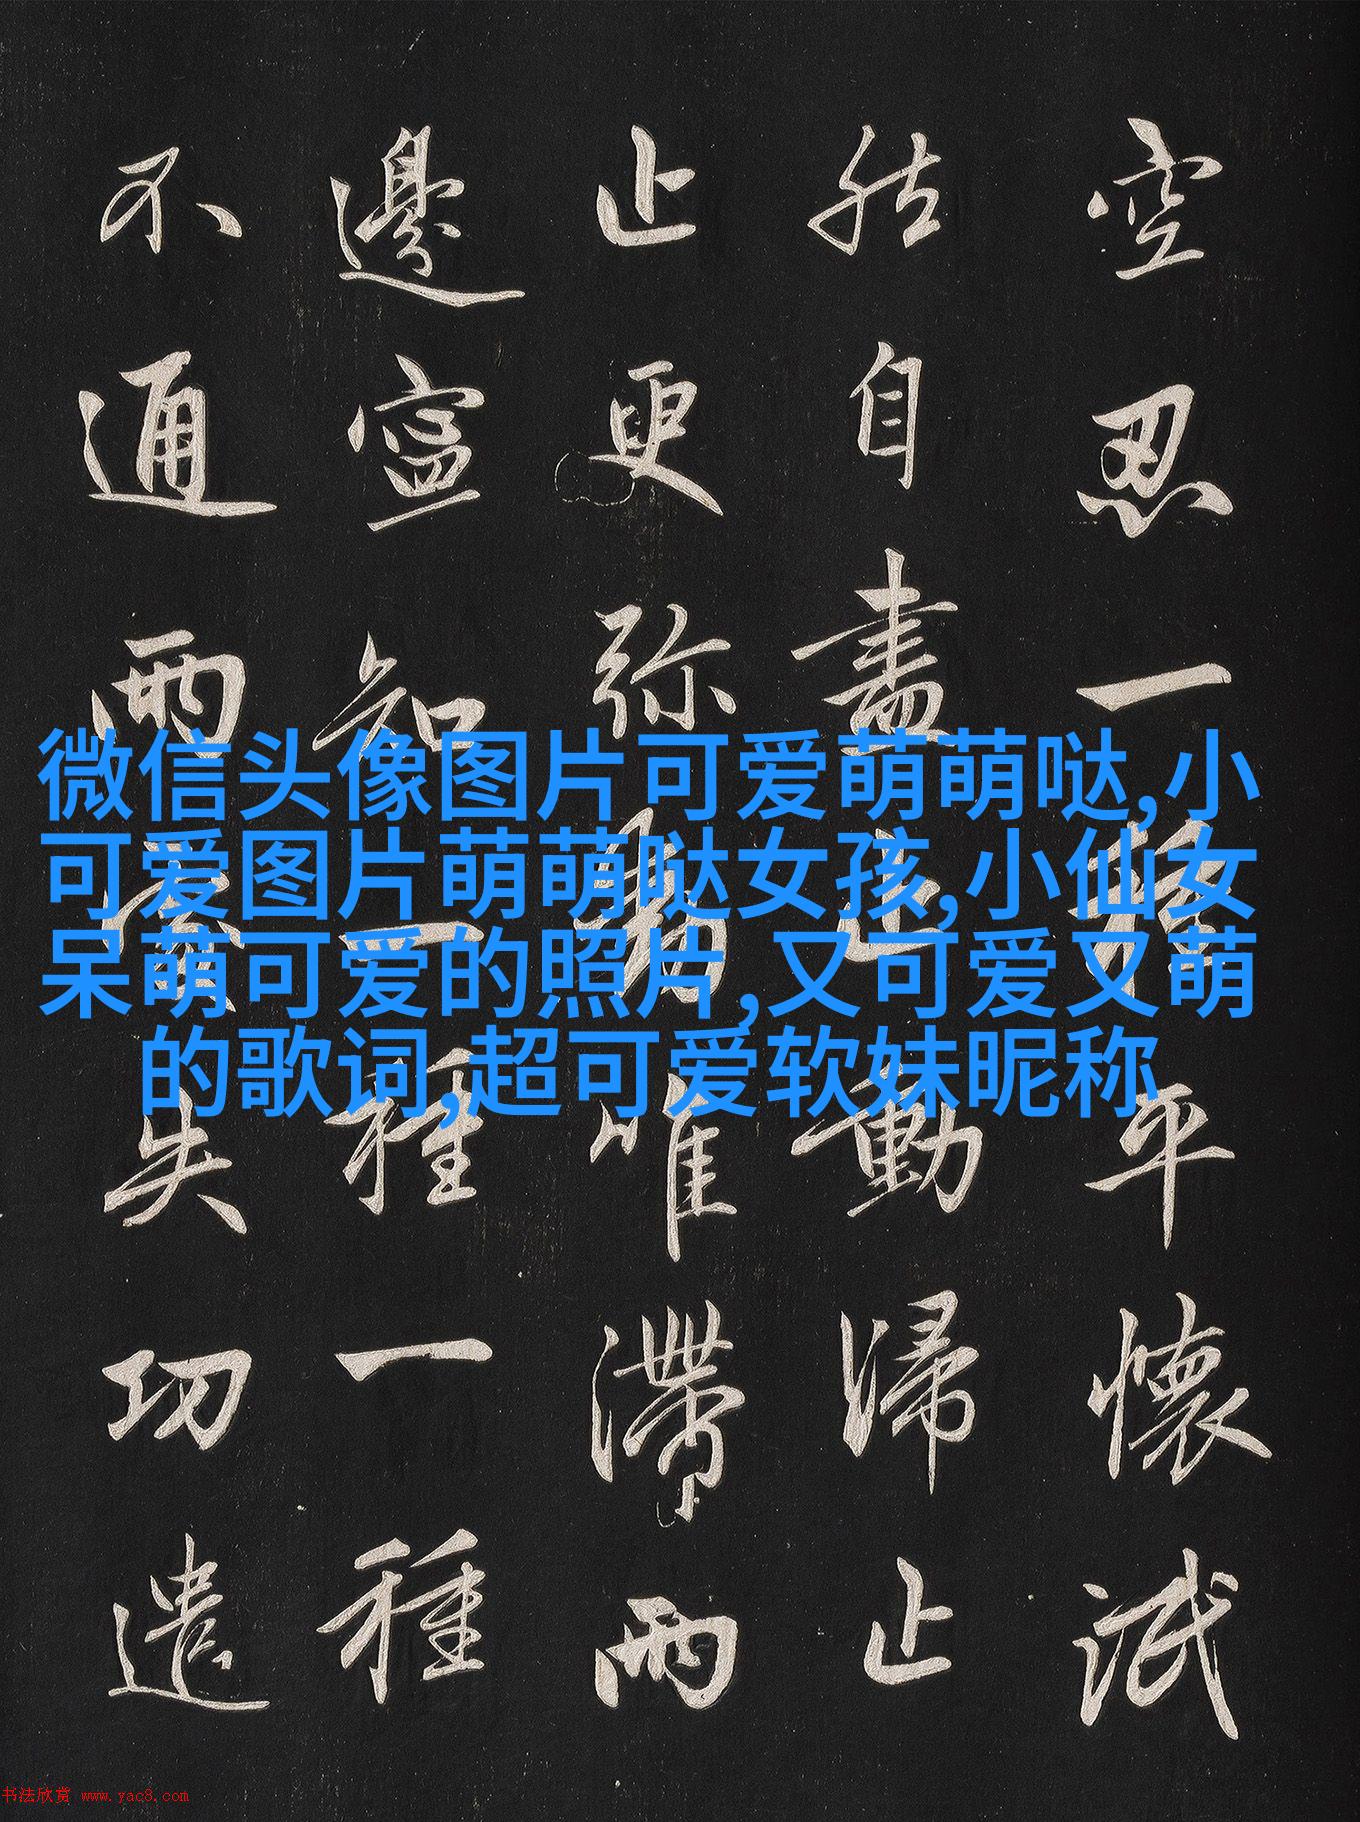 空忍一種平懷泯
然自盡止動歸止
止更弥動唯滯兩
邊寧知一種一種
不通兩處失功遣
微信头像图片可爱萌萌哒,小
可爱图片萌萌哒女孩,小仙女
呆萌可爱的照片,又可爱又萌
的歌词,超可爱软妹昵称
书法欣赏 www.yac8.com